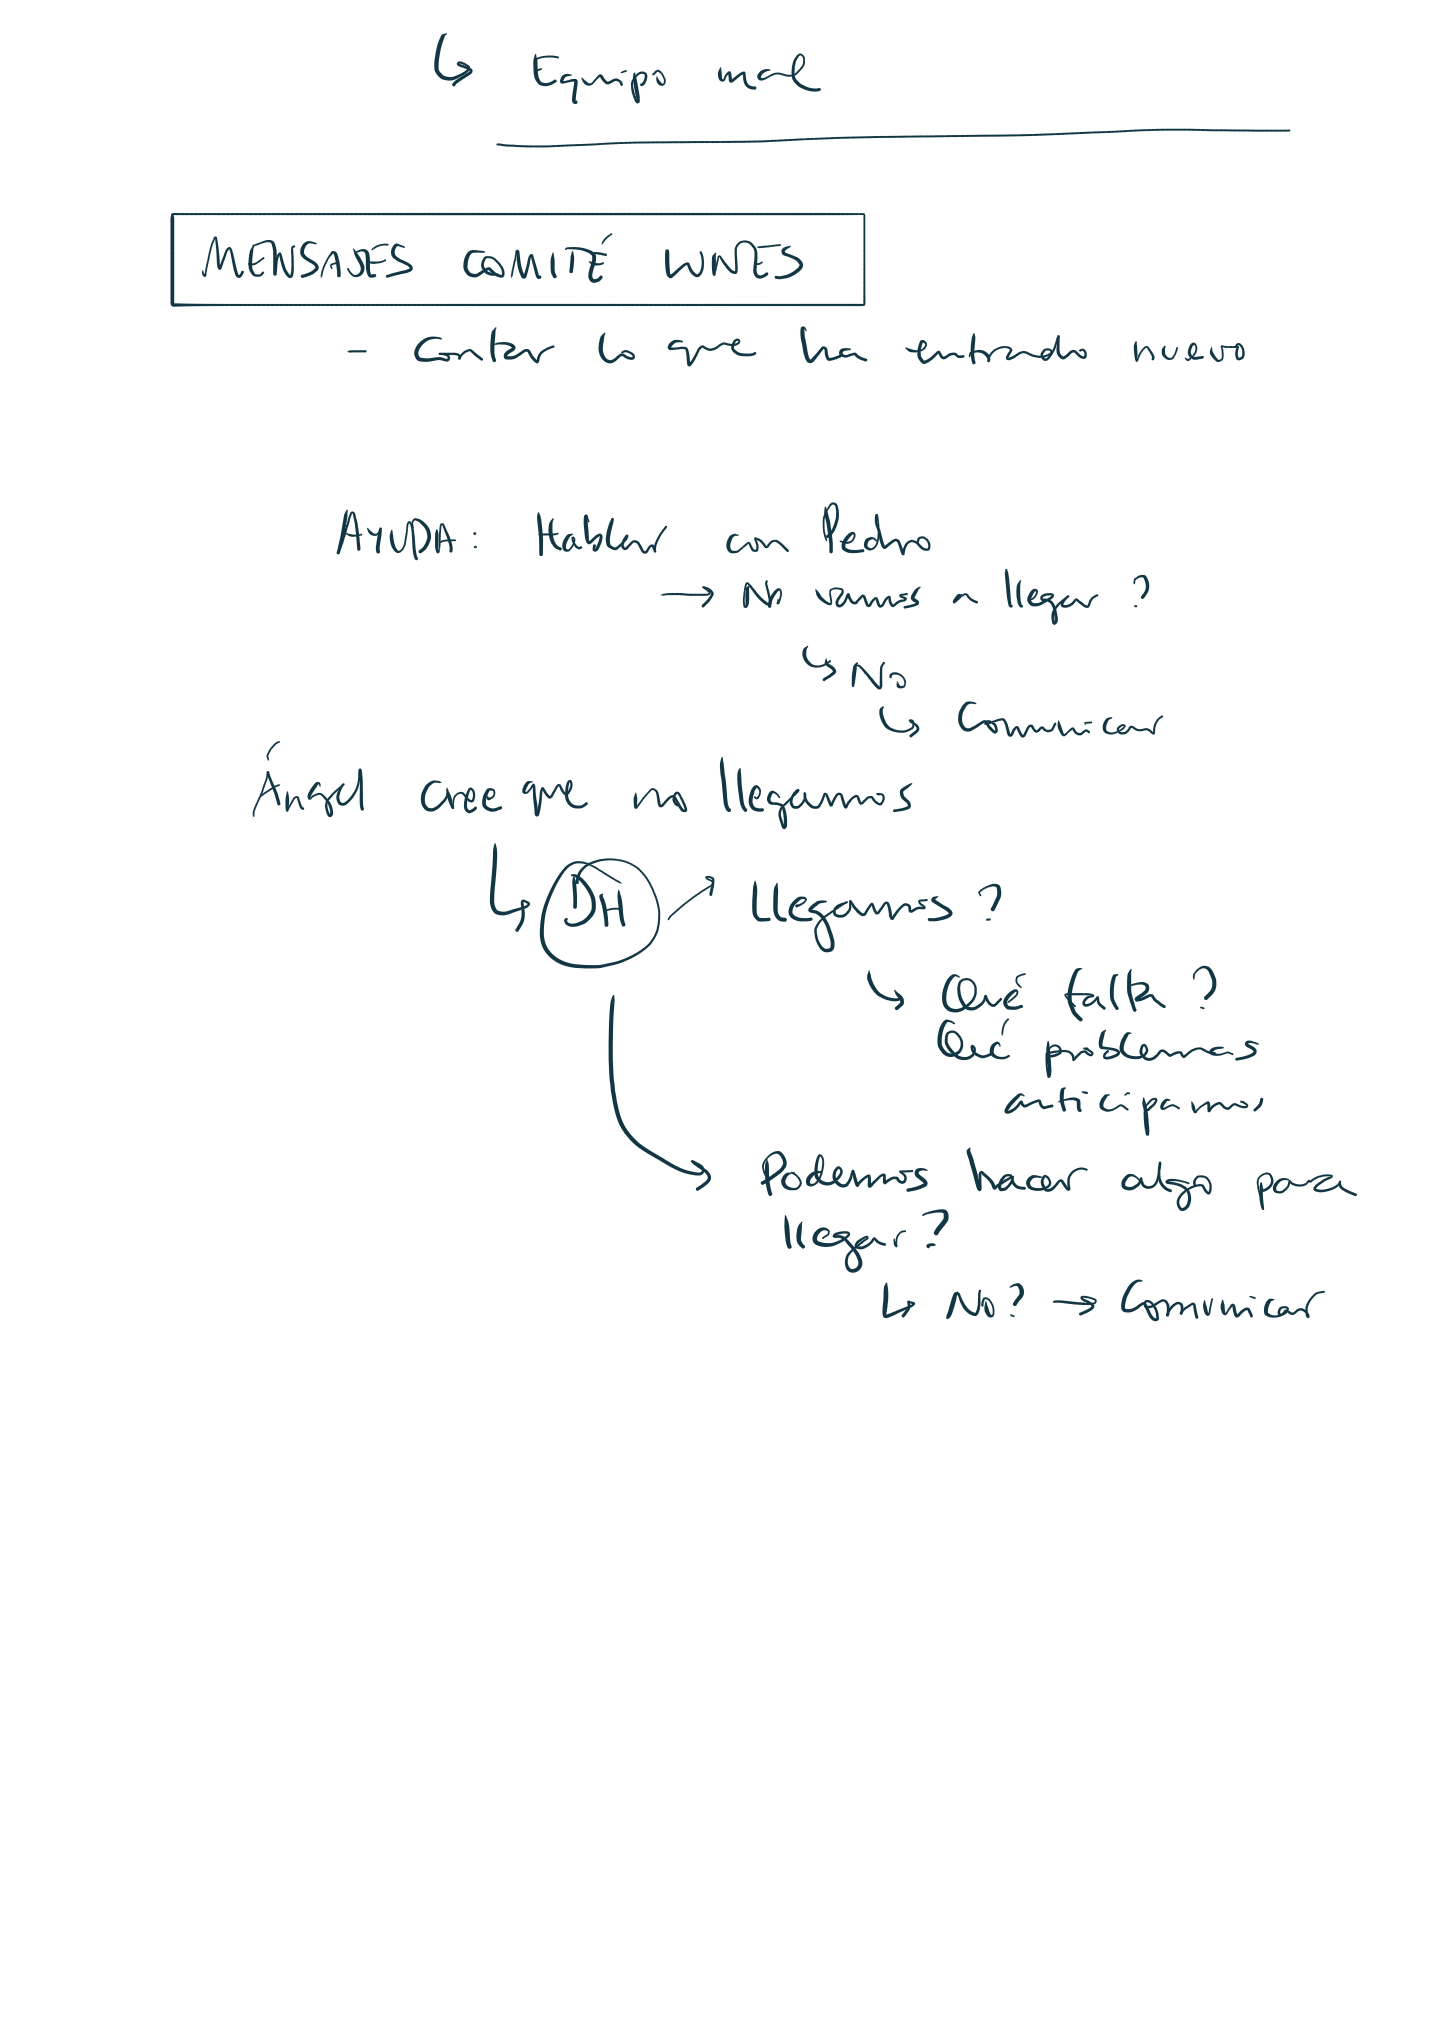 ↳ Equipo mal
MENSAJES COMITÉ LUNES
- Contar lo que ha entrado nuevo
AYUDA: Hablar con Pedro
→ No vamos a llegar?
↳ No
↳ Comunicar
Ángel cree que no llegamos
↳ DH ↗ Llegamos?
↳ Qué falta?
Qué problemas
anticipamos
→ Podemos hacer algo para
llegar?
↳ No? → Comunicar